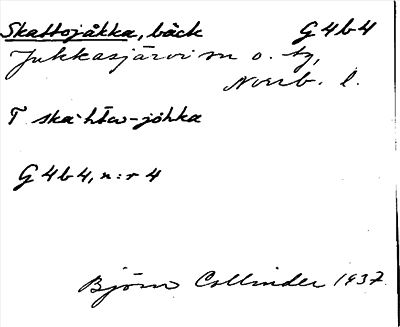 Skattojåkka, bäck G 4 b 4
Jukkasjärvi sn o. tg,
Norrb. l.
T ska·htω-jöhka
G 4 b 4, n:r 4
Björn Collinder 1937.